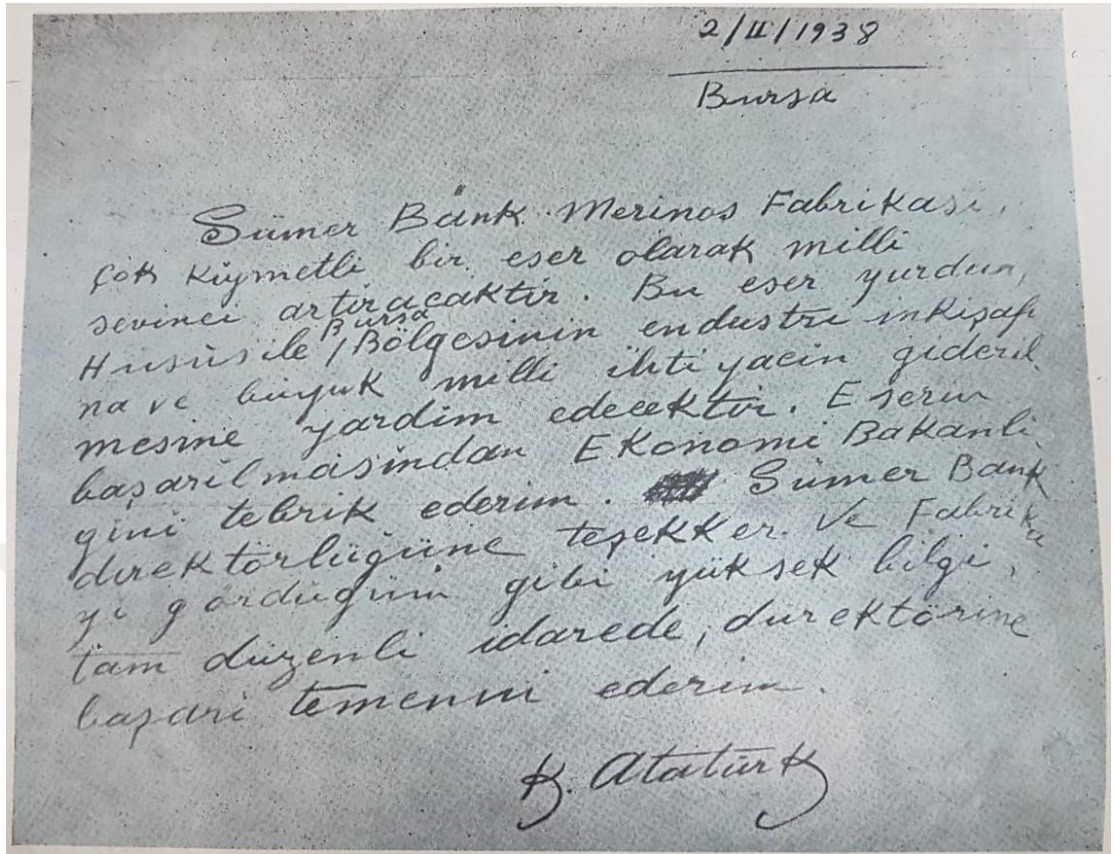 2/II/1938
Bursa
Sümer Bank Merinos Fabrikası,
çok kıymetli bir eser olarak milli
sevinci artıracaktır. Bu eser yurdun,
Husûsile Bursa Bölgesinin endustri inkişafı
na ve büyük milli ihtiyacın gideril
mesine yardım edecektir. Eserin
başarılmasından Ekonomi Bakanlı
ğını tebrik ederim. Sümer Bank
direktörlüğüne teşekker. Ve Fabrika
yı gördüğüm gibi yüksek bilgi,
tam düzenli idarede, durektörine
başarı temenni ederim.
K. Atatürk